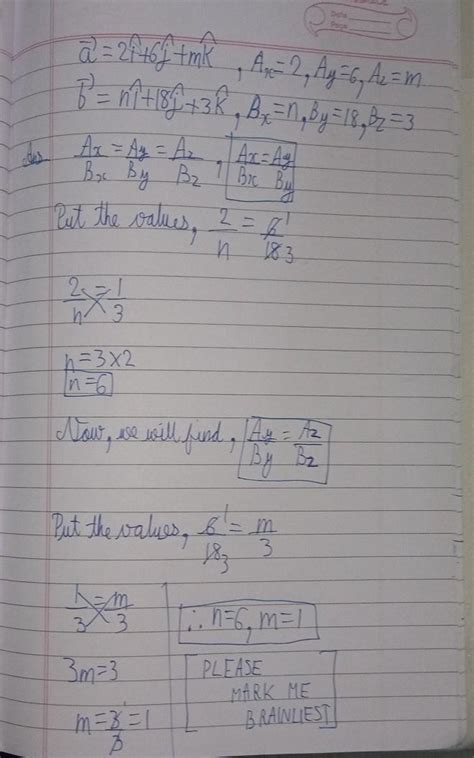 Date
Page
a⃗ = 2î+6ĵ+mk̂ , Ax=2, Ay=6, Az=m
b⃗ = nî+18ĵ+3k̂ , Bx=n, By=18, Bz=3
Ans Ax/Bx = Ay/By = Az/Bz , Ax/Bx = Ay/By
Put the values, 2/n = 6 1/18 3
2/n = 1/3
n=3×2
n=6
Now, we will find, Ay/By = Az/Bz
Put the values, 6 1/18 3 = m/3
1/3 = m/3
∴ n=6, m=1
3m=3
m=3/3=1
PLEASE
MARK ME
BRAINLIEST